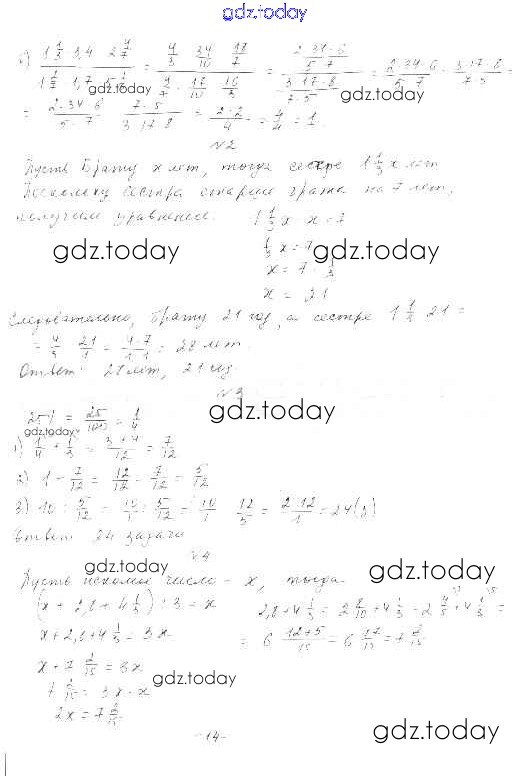 gdz.today
б) (1 1/3 · 3,4 · 2 4/7) / (1 2/7 · 1,7 · 5 1/3) = (4/3 · 34/10 · 18/7) / (9/7 · 17/10 · 16/3) = (2·34·6 / 5·7) / (3·17·8 / 7·5) = 2·34·6 / 5·7 : 3·17·8 / 7·5 =
gdz.today gdz.today
= 2·34·6 / 5·7 · 7·5 / 3·17·8 = 2·2 / 4 = 4/4 = 1.
№2
Пусть брату x лет, тогда сестре 1 1/3 x лет
Поскольку сестра старше брата на 7 лет,
получим уравнение: 1 1/3 x - x = 7
gdz.today gdz.today
1/3 x = 7
x = 7 : 1/3
x = 21
Следовательно, брату 21 год, а сестре 1 1/3 · 21 =
= 4/3 · 21/1 = 4·7 / 1·1 = 28 лет.
Ответ: 28 лет, 21 год
№3
gdz.today
25% = 25/100 = 1/4
gdz.today
1) 1/4 + 1/3 = 3+4 / 12 = 7/12
2) 1 - 7/12 = 12/12 - 7/12 = 5/12
3) 10 : 5/12 = 10/1 : 5/12 = 10/1 · 12/5 = 2·12 / 1 = 24 (з)
Ответ: 24 задачи
№4
gdz.today gdz.today
Пусть искомое число - x, тогда
(x + 2,8 + 4 1/3) : 3 = x
2,8 + 4 1/3 = 2 8/10 + 4 1/3 = 2 4/5 + 4 1/3 =
x + 2,8 + 4 1/3 = 3x
= 6 12+5 / 15 = 6 17/15 = 7 2/15
x + 7 2/15 = 3x
gdz.today gdz.today
7 2/15 = 3x - x
2x = 7 2/15
gdz.today
-14-